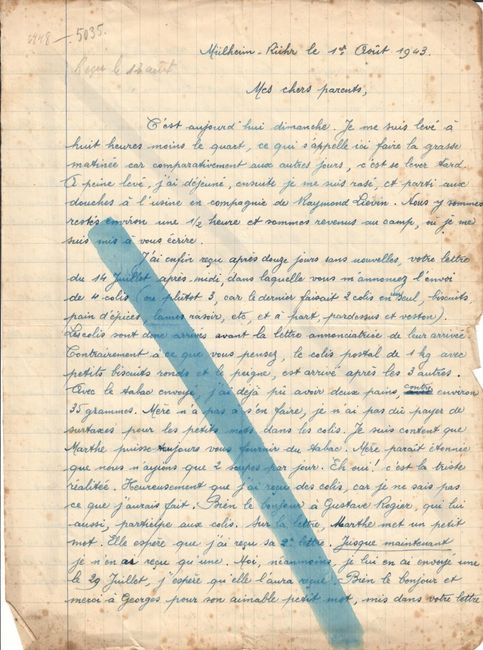 5035.
Reçue le 12 août
Mülheim-Ruhr le 1er Août 1943.
Mes chers parents,
C'est aujourd'hui dimanche. Je me suis levé à
huit heures moins le quart, ce qui s'appelle ici faire la grasse
matinée car comparativement aux autres jours, c'est se lever tard.
A peine levé, j'ai déjeuné, ensuite je me suis rasé, et parti aux
douches à l'usine en compagnie de Raymond. Nous y sommes
restés environ une 1/2 heure et sommes revenus au camp, où je me
suis mis à vous écrire.
J'ai enfin reçu après douze jours sans nouvelles, votre lettre
du 14 Juillet après-midi, dans laquelle vous m'annoncez l'envoi
de 4 colis (ou plutôt 3, car le dernier faisait 2 colis en un seul, biscuits
pain d'épices, lames rasoir, etc, et à part, pardessus et veston).
Les colis sont donc arrivés avant la lettre annonciatrice de leur arrivée
Contrairement à ce que vous pensez, le colis postal de 1 kg avec
petits biscuits ronds et le peigne, est arrivé après les 3 autres.
Avec le tabac envoyé, j'ai déjà pû avoir deux pains contre environ
35 grammes. Mère n'a pas à s'en faire, je n'ai pas dû payer de
surtaxes pour les petits mots dans les colis. Je suis content que
Marthe puisse toujours vous fournir du tabac. Mère paraît étonnée
que nous n'ayions que 2 soupes par jour. Eh oui! c'est la triste
réalitée. Heureusement que j'ai reçu des colis, car je ne sais pas
ce que j'aurais fait. Bien le bonjour à Gustave Rogier, qui lui
aussi, participe aux colis. Sur la lettre, Marthe met un petit
mot. Elle espère que j'ai reçu sa 2e lettre. Jusque maintenant
je n'en ai reçu qu'une. Moi, néanmoins, je lui en ai envoyé une
le 29 Juillet, j'espère qu'elle l'aura reçue. Bien le bonjour et
merci à Georges pour son aimable petit mot, mis dans votre lettre